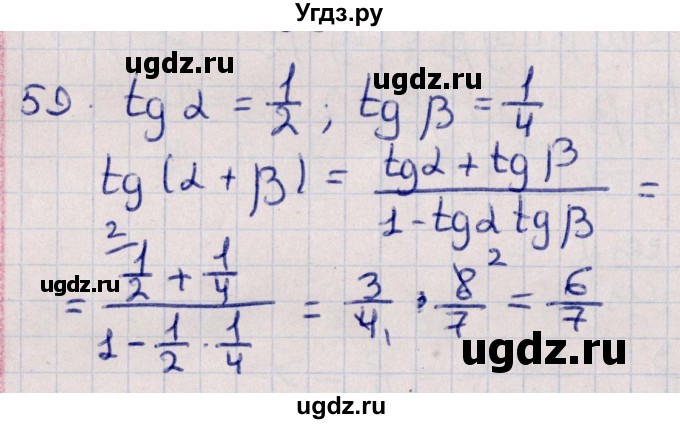 Угдз.ру
ugdz.ru ugdz.ru
59. tg α = 1/2 ; tg β = 1/4
tg(α + β) = (tgα + tg β)/(1 - tgα tg β) =
ugdz.ru ugdz.ru
= (1/2 ² + 1/4)/(1 - 1/2 · 1/4) = 3/4 ₁ · 8/7 ² = 6/7
ugdz.ru
ugdz.ru